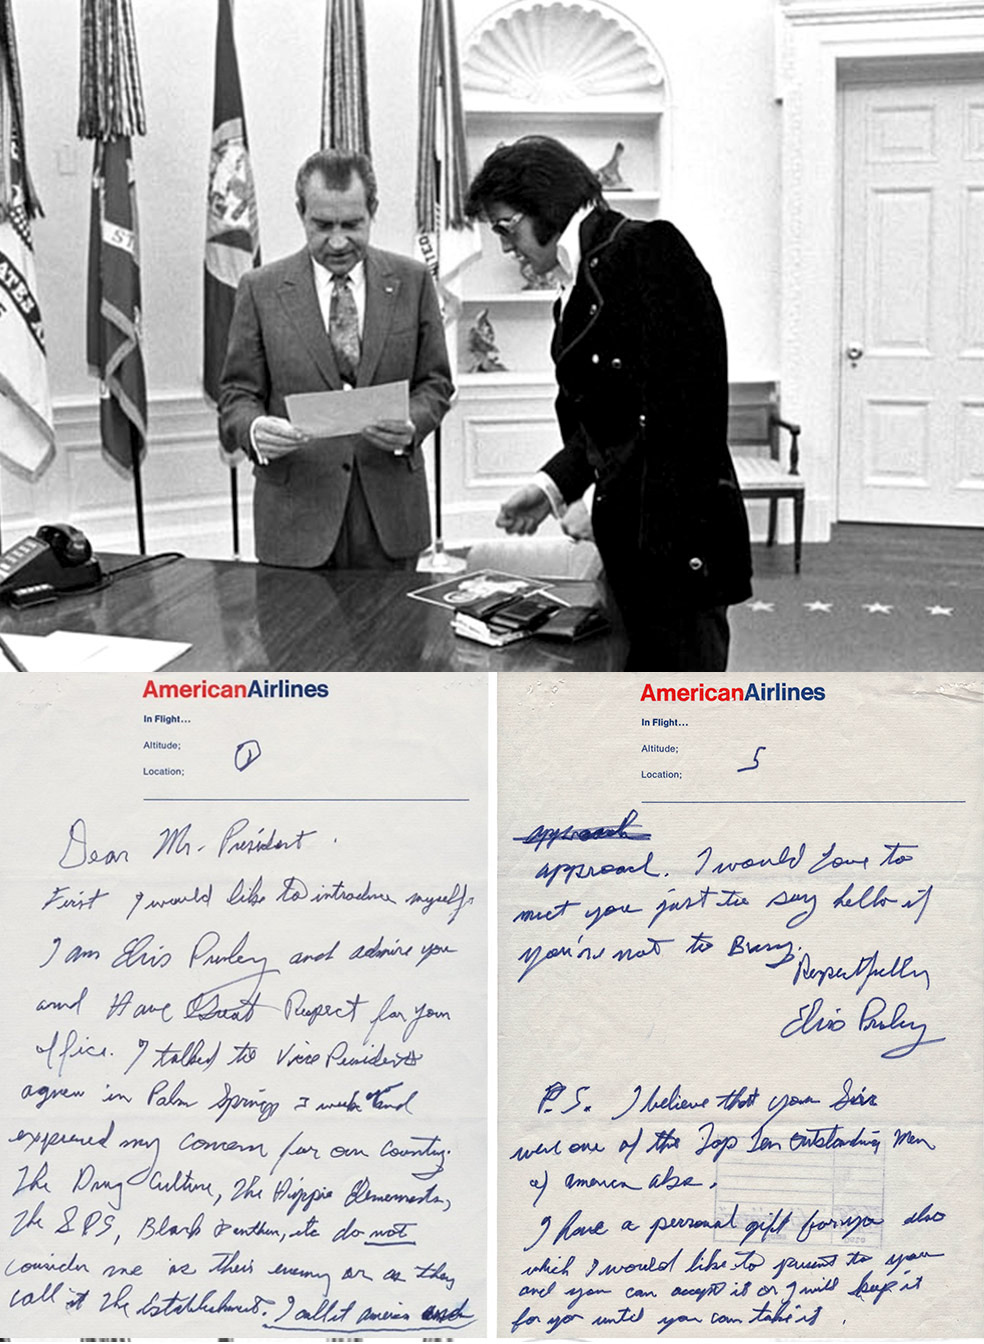 ST
ATES
UNITED
AmericanAirlines
In Flight...
Altitude;
Location;
1
Dear Mr. President.
First I would like to introduce myself.
I am Elvis Presley and admire you
and Have Great Respect for your
office. I talked to Vice President
agnew in Palm Springs 3 weeks and
expressed my concern for our country.
The Drug Culture, The Hippie Elements,
The SDS, Black Panthers, etc do not
consider me as their enemy or as they
call it The Establishment. I call it america and
AmericanAirlines
In Flight...
Altitude;
Location;
5
approach
approach. I would love to
meet you just to say hello if
you're not to Busy.
Respectfully
Elvis Presley
P.S. I believe that you Sir
were one of the Top Ten Outstanding Men
of america also.
I have a personal gift for you also
which I would like to present to you
and you can accept it or I will keep it
for you until you can take it.